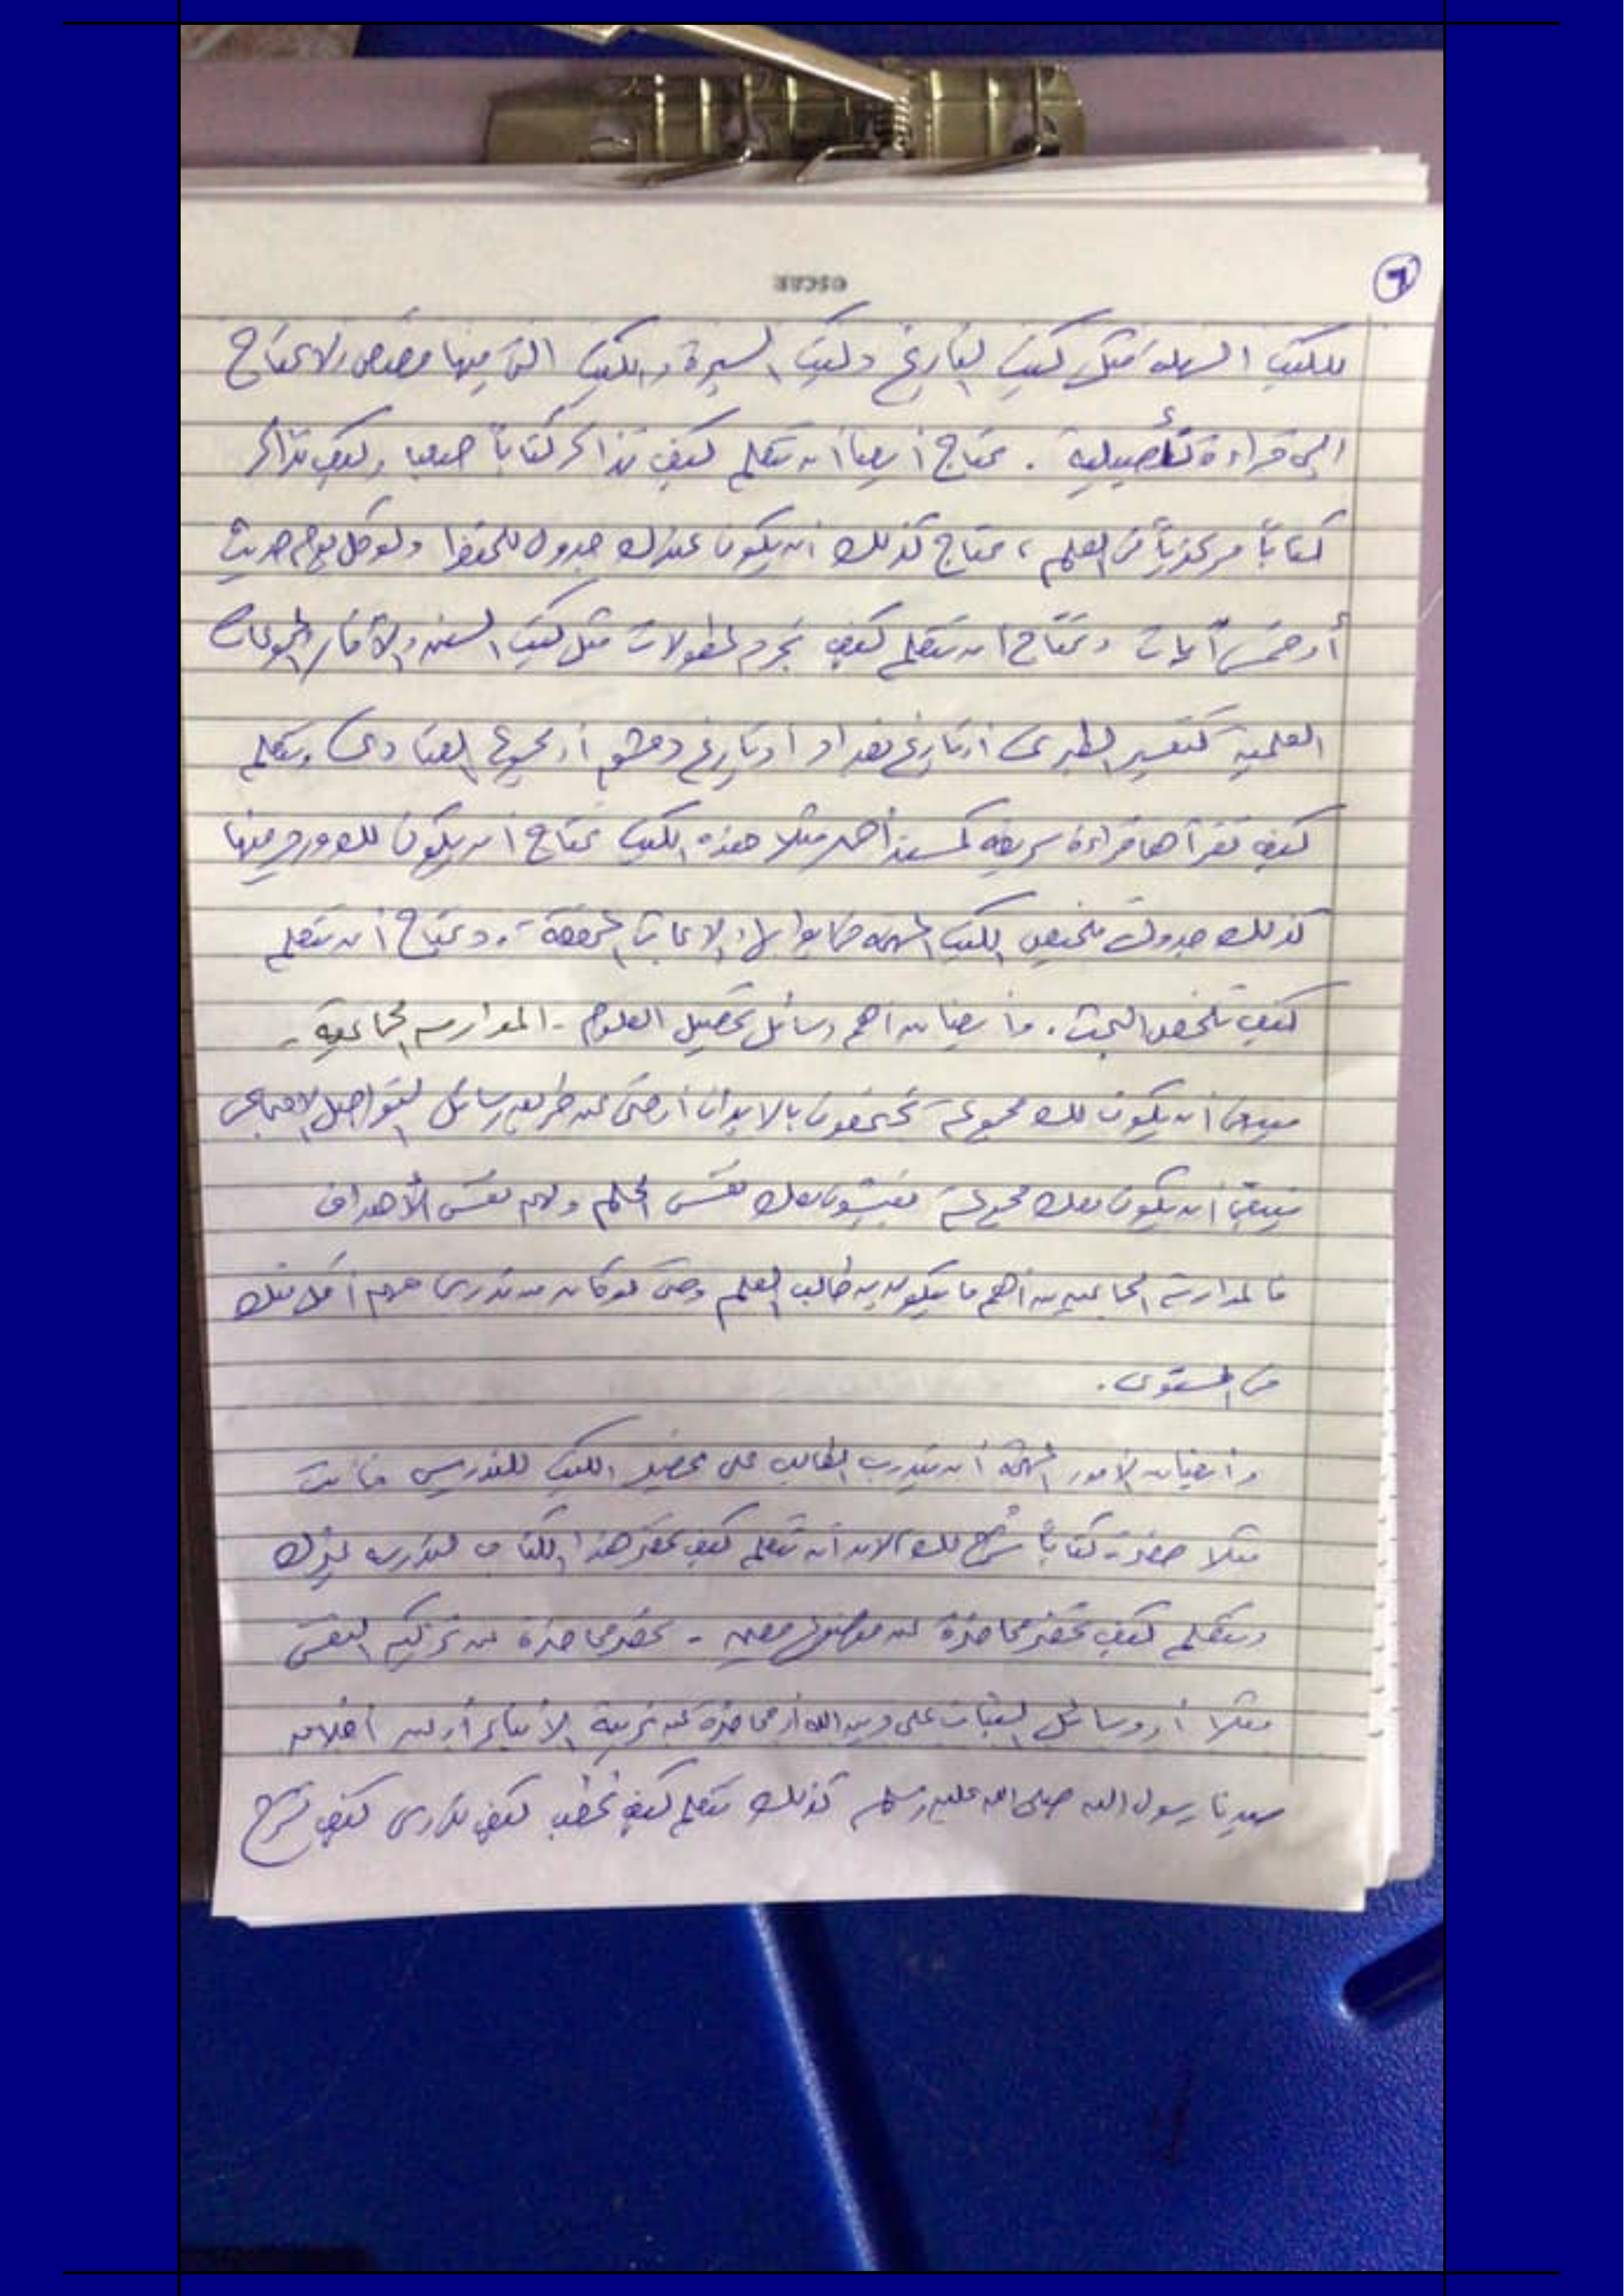 ٦
للكتب السهلة مثل كتب التاريخ وكتب السيرة والكتب التي فيها قصص ولا تحتاج
إلى قراءة تأصيلية . تحتاج أيضا أن تتعلم كيف تذاكر كتاباً صعبا وكيف تذاكر
كتاباً مركزياً في العلم ، تحتاج كذلك أن يكون عندك جدول للحفظ ولو كل يوم حديث
أو خمس آيات وتحتاج أن تتعلم كيف تجرد المطولات مثل كتب السنن والآثار والموسوعات
العلمية كتفسير الطبرى أو تاريخ بغداد أو تاريخ دمشق أو مجموع الفتاوى وتتعلم
كيف تقرأها قراءة سريعة كمسند أحمد مثلا هذه الكتب تحتاج أن يكون لك ورد منها
كذلك جدول تلخيص الكتب المهمة والأبحاث المحققة . وتحتاج أن تتعلم
كيف تلخص البحث . وأيضا من أهم وسائل تحصيل العلوم - المدارسة الجماعية -
فينبغى أن يكون لك مجموعة تجتمعون بالأبدان أو حتى عن طريق وسائل التواصل الاجتماعى
ينبغى أن يكون معك مجموعة يعيشون معك نفس الحلم ولهم نفس الأهداف
فالمدارسة الجماعية من أهم ما يتكون به طالب العلم وحتى لو كان من تدرس معهم أقل منك
فى المستوى .
وأيضا من الأمور المهمة أن يتدرب الطالب على تحضير الكتب للتدريس فأنت
مثلا حضرت كتاباً شُرح لك لابد أن تتعلم كيف تحضر هذا الكتاب لتدرسه لغيرك
وتتعلم كيف تحضر محاضرة عن موضوع معين - تحضر محاضرة عن تزكية النفس
مثلا أو وسائل الثبات على دين الله أو محاضرة عن تربية الأبناء أو عن أخلاق
سيدنا رسول الله صلى الله عليه وسلم كذلك تتعلم كيف تخطب كيف تدرس كيف تشرح